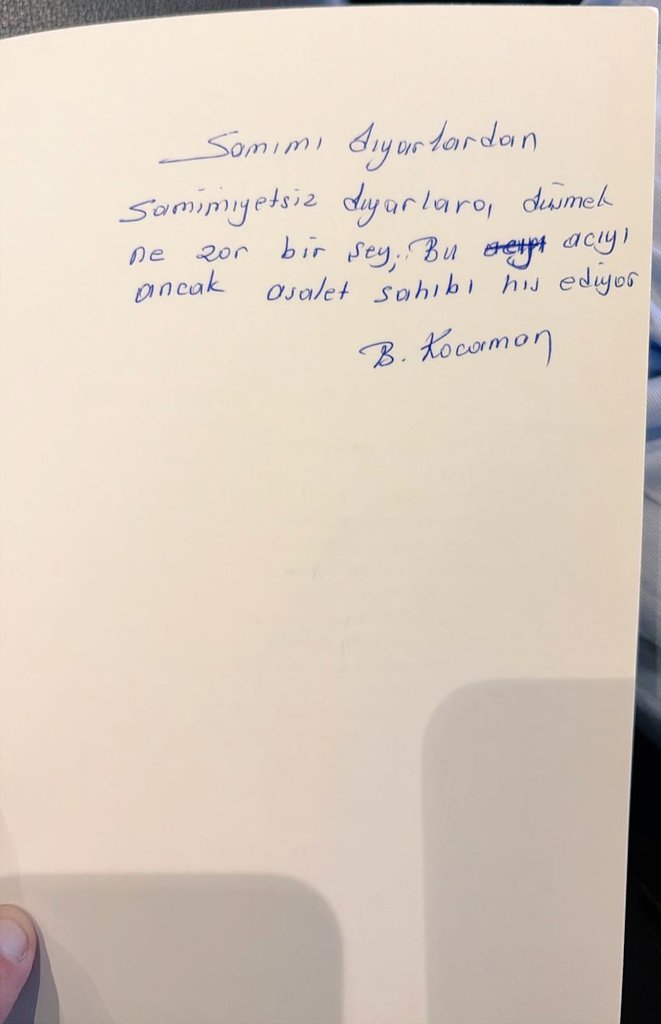 Samimi diyarlardan
samimiyetsiz diyarlara, düşmek
ne zor bir şey,. Bu acıyı
ancak asalet sahibi his ediyor
B. Kocaman